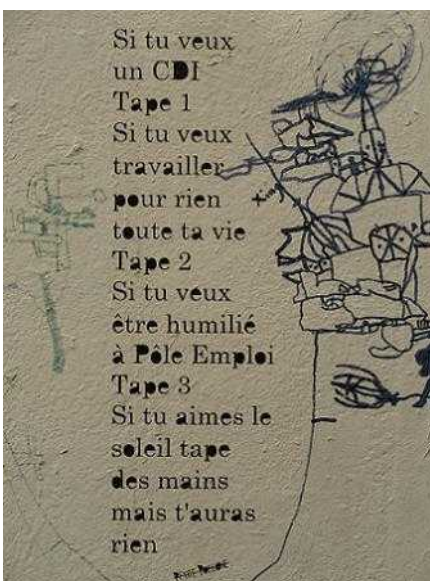 Si tu veux
un CDI
Tape 1
Si tu veux
travailler
pour rien
toute ta vie
Tape 2
Si tu veux
être humilié
à Pôle Emploi
Tape 3
Si tu aimes le
soleil tape
des mains
mais t'auras
rien